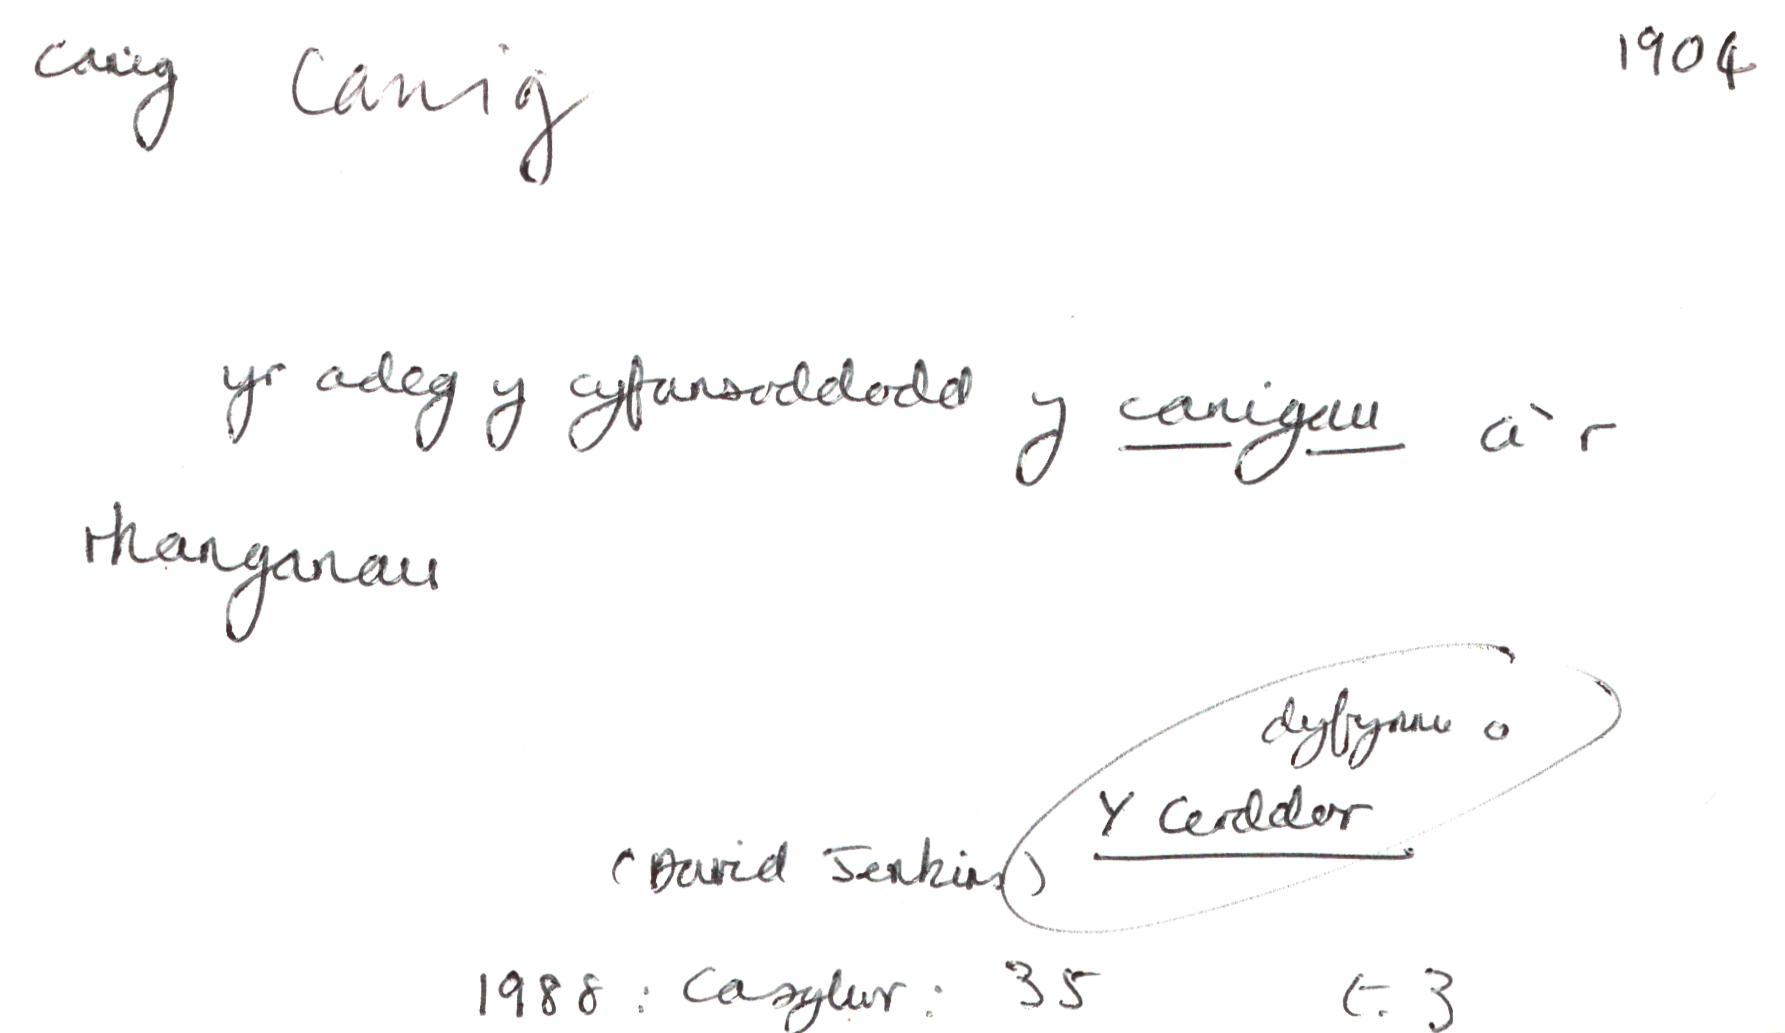 canig Canig 1904
yr adeg y cyfansoddodd y canigau a'r
rhanganau
dyfynnu o
Y Cerddor
(David Jenkins)
1988 : Casglwr : 35 t. 3